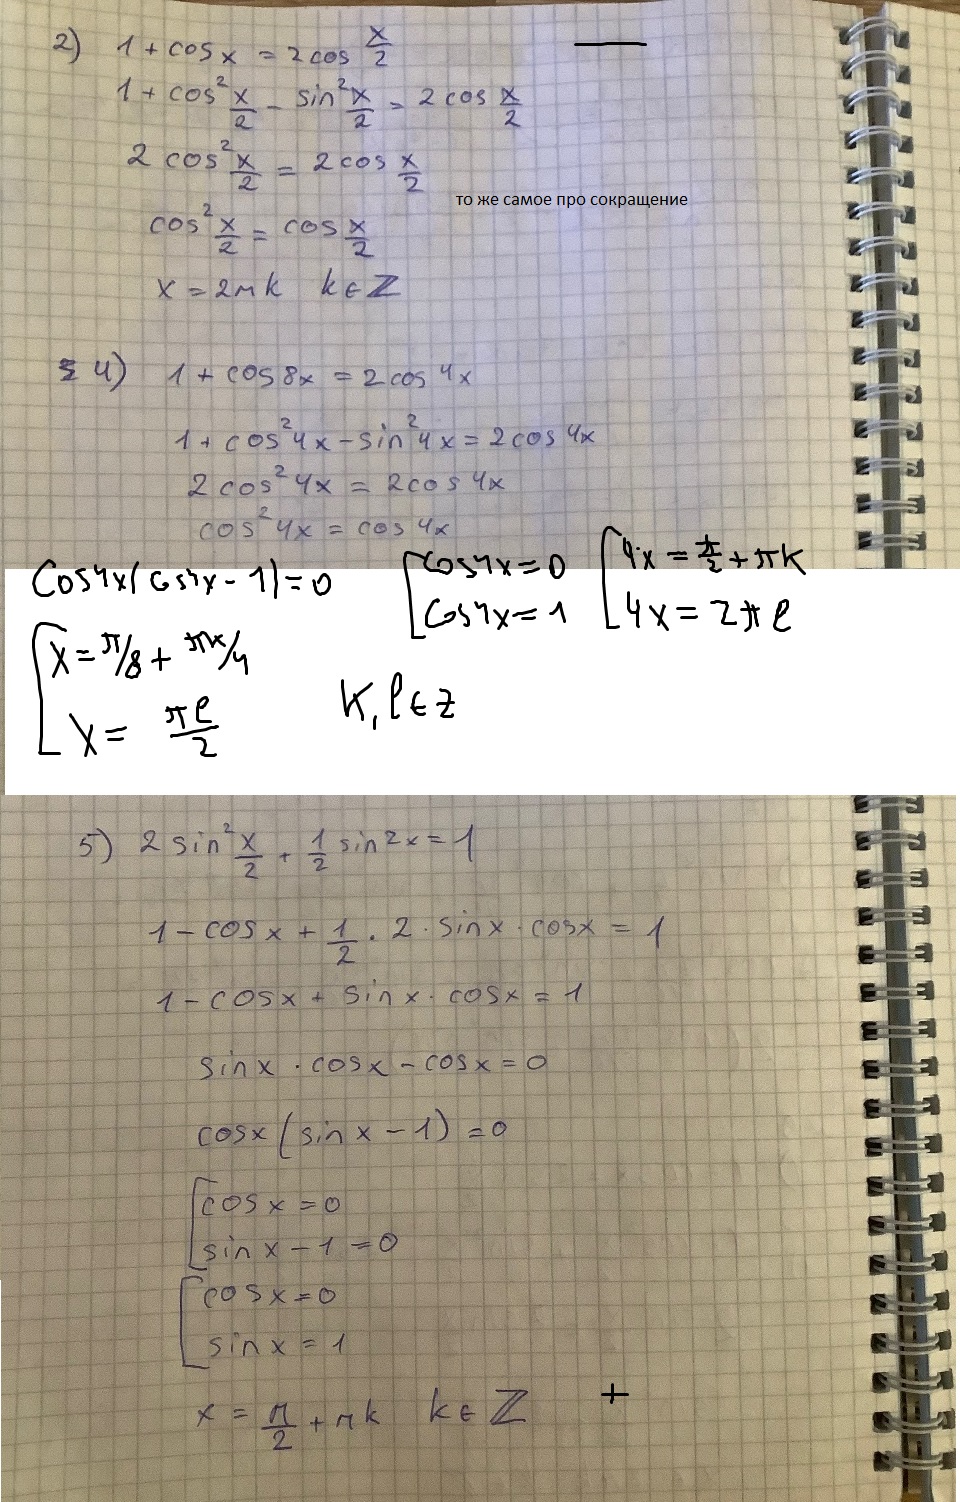 2) 1 + cos x = 2 cos x/2
1 + cos² x/2 - sin² x/2 = 2 cos x/2
2 cos² x/2 = 2 cos x/2
то же самое про сокращение
cos² x/2 = cos x/2
x = 2πk k ∈ ℤ
4) 1 + cos 8x = 2 cos 4x
1 + cos² 4x - sin² 4x = 2 cos 4x
2 cos² 4x = 2 cos 4x
cos² 4x = cos 4x
cos4x(cos4x - 1) = 0 [cos4x = 0 [4x = π/2 + πk
cos4x = 1 4x = 2πl
[x = π/8 + πk/4
x = πl/2 k, l ∈ z
5) 2 sin² x/2 + 1/2 sin 2x = 1
1 - cos x + 1/2 · 2 · sin x · cos x = 1
1 - cos x + sin x · cos x = 1
sin x · cos x - cos x = 0
cos x (sin x - 1) = 0
[cos x = 0
sin x - 1 = 0
[cos x = 0
sin x = 1
x = π/2 + πk k ∈ ℤ +